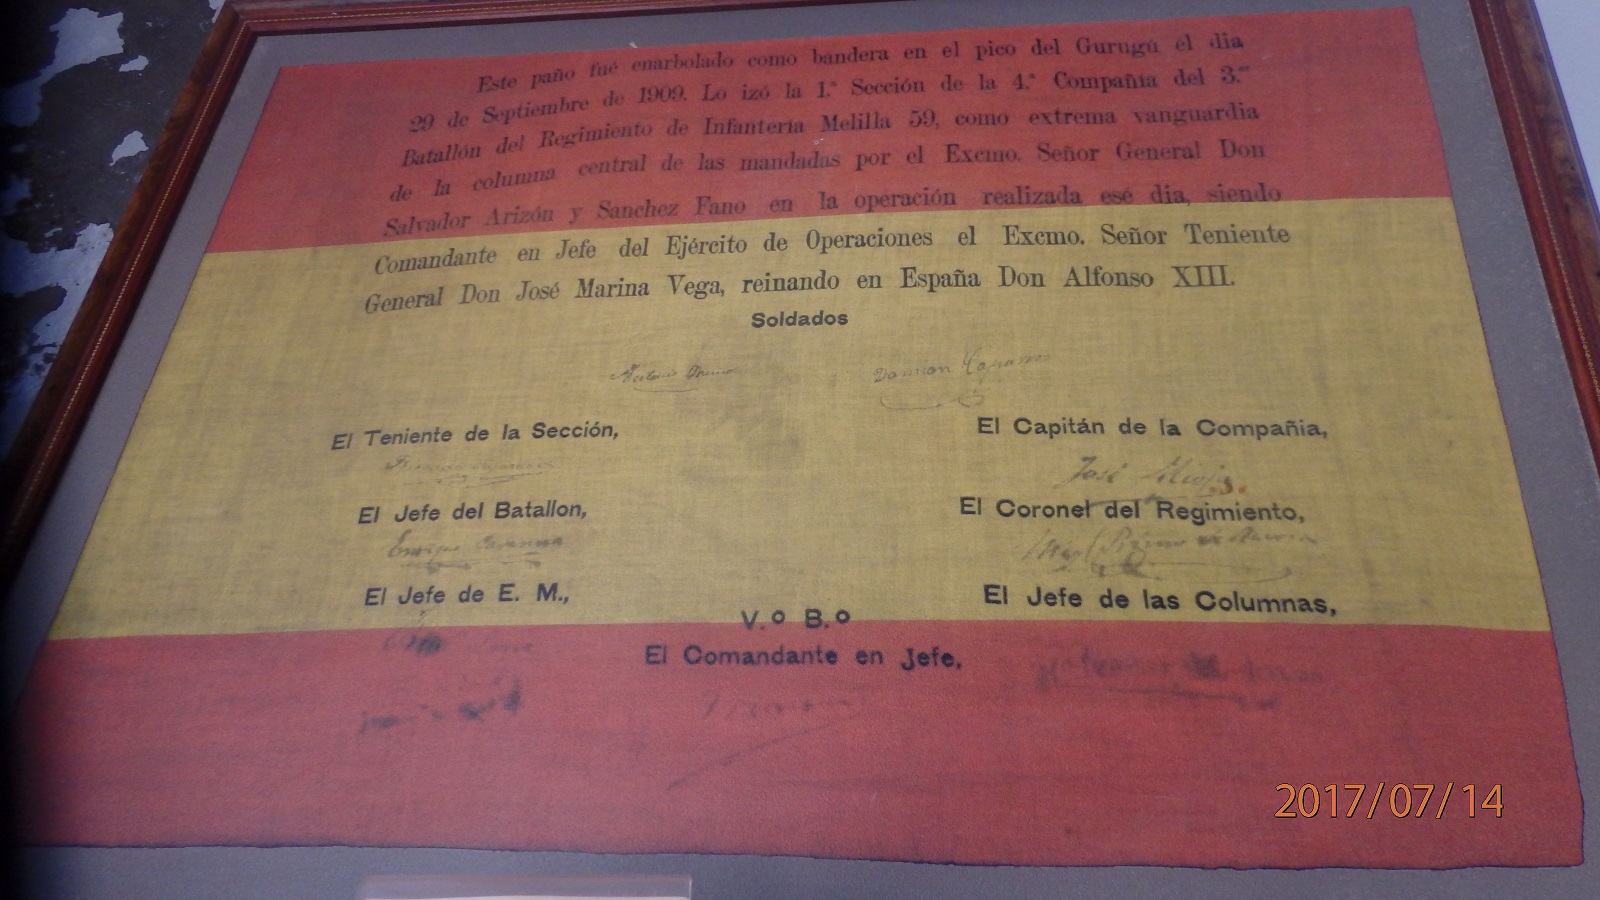 Este paño fué enarbolado como bandera en el pico del Gurugú el dia
29 de Septiembre de 1909. Lo izó la 1.ª Sección de la 4.ª Compañía del 3.er
Batallón del Regimiento de Infantería Melilla 59, como extrema vanguardia
de la columna central de las mandadas por el Excmo. Señor General Don
Salvador Arizón y Sanchez Fano en la operación realizada ese dia, siendo
Comandante en Jefe del Ejército de Operaciones el Excmo. Señor Teniente
General Don José Marina Vega, reinando en España Don Alfonso XIII.
Soldados
Damian
El Teniente de la Sección,
El Capitán de la Compañia,
José
El Jefe del Batallon,
El Coronel del Regimiento,
Enrique
El Jefe de E. M.,
El Jefe de las Columnas,
V.º B.º
El Comandante en Jefe,
2017/07/14